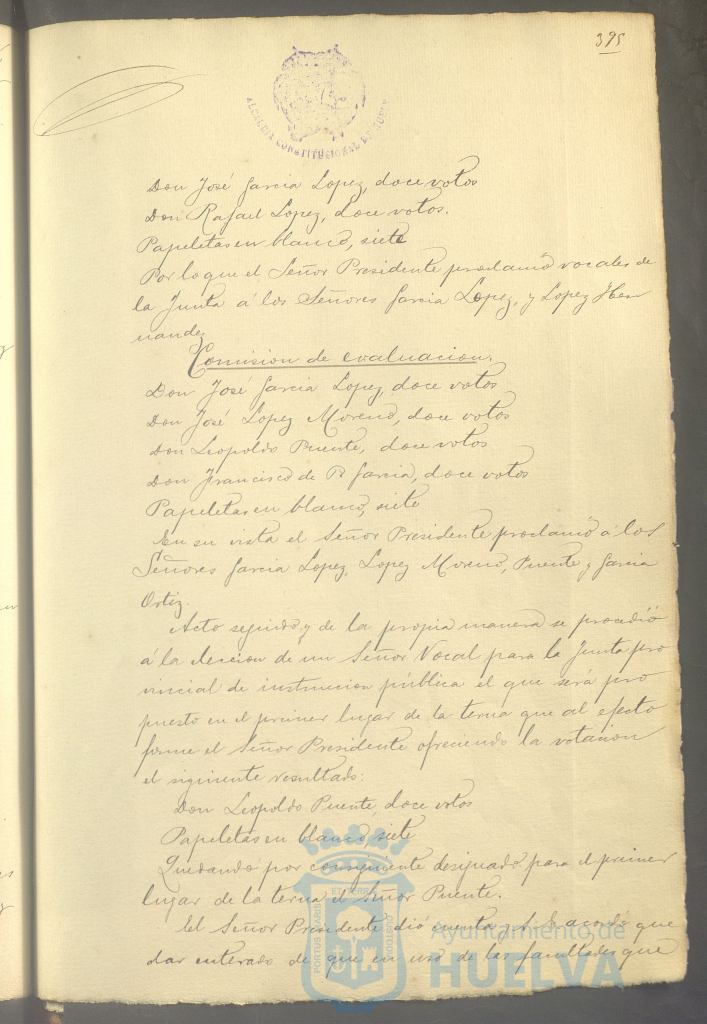 395
ALCALDIA CONSTITUCIONAL DE HUELVA
Don José Garcia Lopez, doce votos
Don Rafael Lopez, doce votos.
Papeletas en blanco, siete
Por lo que el Señor Presidente proclamó vocales de
la Junta á los Señores Garcia Lopez, y Lopez Her
nandez
Comision de evaluacion.
Don José Garcia Lopez, doce votos
Don José Lopez Moreno, doce votos
Don Leopoldo Puente, doce votos
Don Francisco de P. Garcia, doce votos
Papeletas en blanco, siete
En su vista el Señor Presidente proclamó á los
Señores Garcia Lopez, Lopez Moreno, Puente y Garcia
Ortiz.
Acto seguido y de la propia manera se procedió
á la eleccion de un Señor Vocal para la Junta pro
vincial de instruccion pública el que será pro
puesto en el primer lugar de la terna que al efecto
forme el Señor Presidente ofreciendo la votacion
el siguiente resultado:
Don Leopoldo Puente, doce votos
Papeletas en blanco, siete
Quedando por consiguiente designado para el primer
lugar de la terna el Señor Puente.
El Señor Presidente dió cuenta y S. E. acordó que
dar enterado de que en uso de las facultades que
PORTUS MARIS ET TERRAE CUSTODIA
Ayuntamiento de
HUELVA